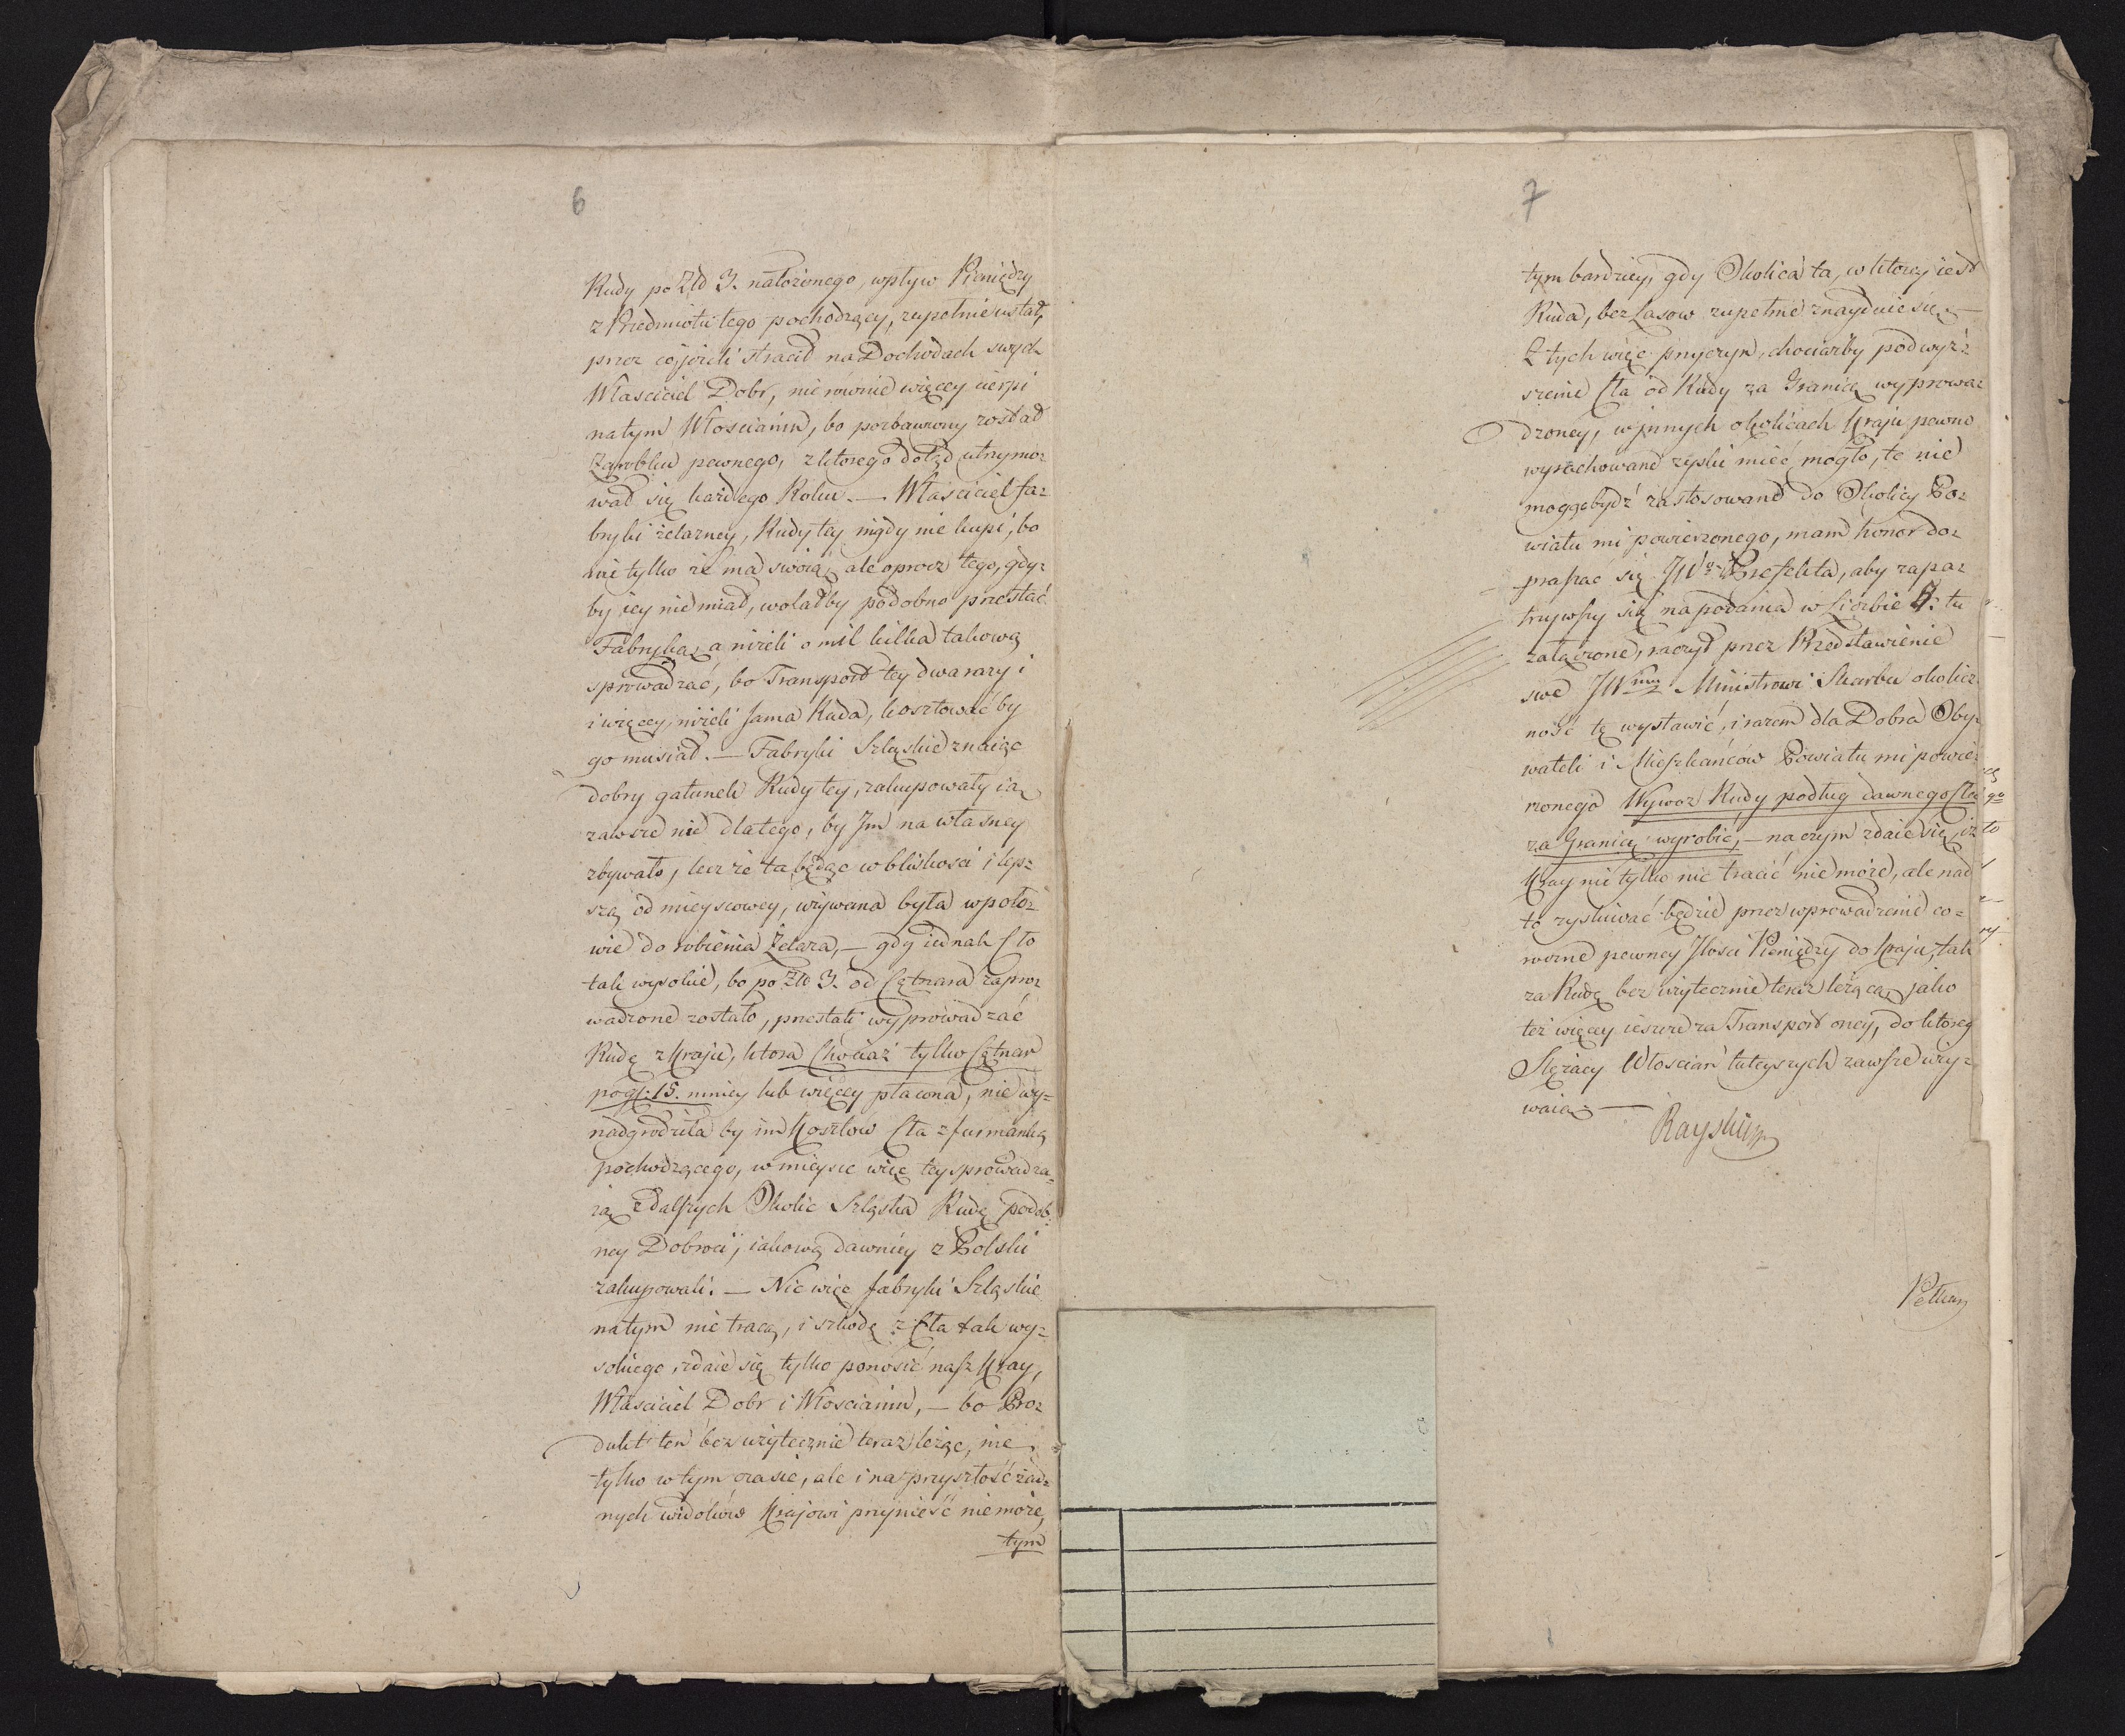 6
Rudy po Złł 3. nałożonego, wpływ Pieniędzy
z Przedmiotu tego pochodzący, zupełnie ustał,
przez co, jeżeli stracił na Dochodach swych
Własciciel Dobr, nierównie więcey cierpi
natym Włoscianin, bo pozbawiony został
Zarobku pewnego, z ktorego dotąd utrzymo=
wał się każdego Roku. — Własciciel fa=
bryki żelazney, Rudy tey nigdy nie kupi, bo
nie tylko że ma swoią, ale oprocz tego, gdy=
by iey niemiał, wolałby podobno przestać
Fabryką, a niżeli o mil kilka takową
sprowadzać, bo Transport tey dwa razy i
i więcey, niżeli sama Ruda, kosztować by
go musiał. — Fabryki Szląskie znaiąc
dobry gatunek Rudy tey, zakupowały ią,
zawsze nie dlatego, by Im na własney
zbywało, lecz że ta będąc w bliskosci i lep=
szą od mieyscowey, używana była wpoło=
wie do robienia Żelaza, — gdy iednak Cło
tak wysokie, bo po Złł 3. od Cętnara zapro=
wadzone zostało, przestali wyprowadzać
Rudę z Kraju, ktora Chociaż tylko Cętnar
po gł: 15. mniey lub więcey płacona, nie wy=
nadgrodziła by im Kosztow Cła z furmanką
pochodzącego, w mieysce więc tey sprowadza=
ią z dalszych Okolic Szląska Rudę podob=
ney Dobroci, iakową dawniey z Polski
zakupowali. — Nic więc fabryki Szląskie
natym nie tracą, i szkodę z Cła tak wy=
sokiego, zdaie się tylko ponosić nasz Kray,
Własciciel Dobr i Włoscianin, — bo Pro=
dukt ten bez użytecznie teraz leżąc, nie
tylko w tym czasie, ale i na przyszłość żad=
nych widoków Krajowi przynieść niemoże,
tym
7
tym bardziey, gdy Okolica ta, w ktorey iest
Ruda, bez Lasow zupełnie znayduie się. —
Z tych więc przyczyn, chociażby podwyż=
szenie Cła od Rudy za Granicę wyprowa=
dzoney, w innych okolicach Kraju pewno
wyrachowane zyski mieć mogło, te nie
mogą bydź zastosowane do Okolicy Po=
wiatu mi powierzonego, mam honor do=
praszać się JWo Prefekta, aby zapa=
trzywszy się na podania w Liczbie tu
załączone, raczył przez Przedstawienie
swe JWmu Ministrowi Skarbu okolicz
ność tę wystawić, i razem dla Dobra Oby=
wateli i Mieszkańców Powiatu mi powie=
rzonego Wywoz Rudy podług dawnego Cła
za Granicę wyrobić, — naczym zdaie się, iż
Kray nie tylko nic tracić nie może, ale nad
to zyskiwać będzie przez wprowadzenie co=
roczne pewney Ilosci Pieniędzy do Kraju, tak
za Rudę bez użytecznie teraz leżącą, jako
też więcey ieszcze za Transport oney, do ktorey
Slęzacy Włoscian tuteyszych zawsze uży=
waią. —
Rayski